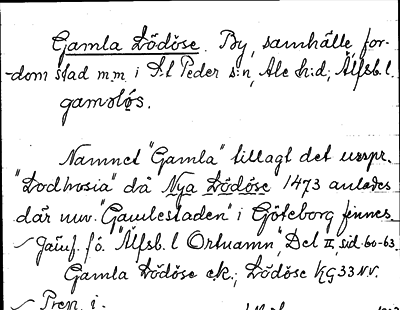 Gamla Lödöse. By, samhälle, for-
-dom stad m.m i S:t Peder s:n, Ale h:d; Älfsb. l.
gamoløs.
Namnet "Gamla" tillagt det urspr.
"Lodhosia" då Nya Lödöse 1473 anlades
där nuv. "Gamlestaden" i Göteborg finnes.
Jämf. fö. "Älfsb. l Ortnamn", Del II, sid. 60-63.
Gamla Lödöse ek.; Lödöse KG33NV.
Prep. i.